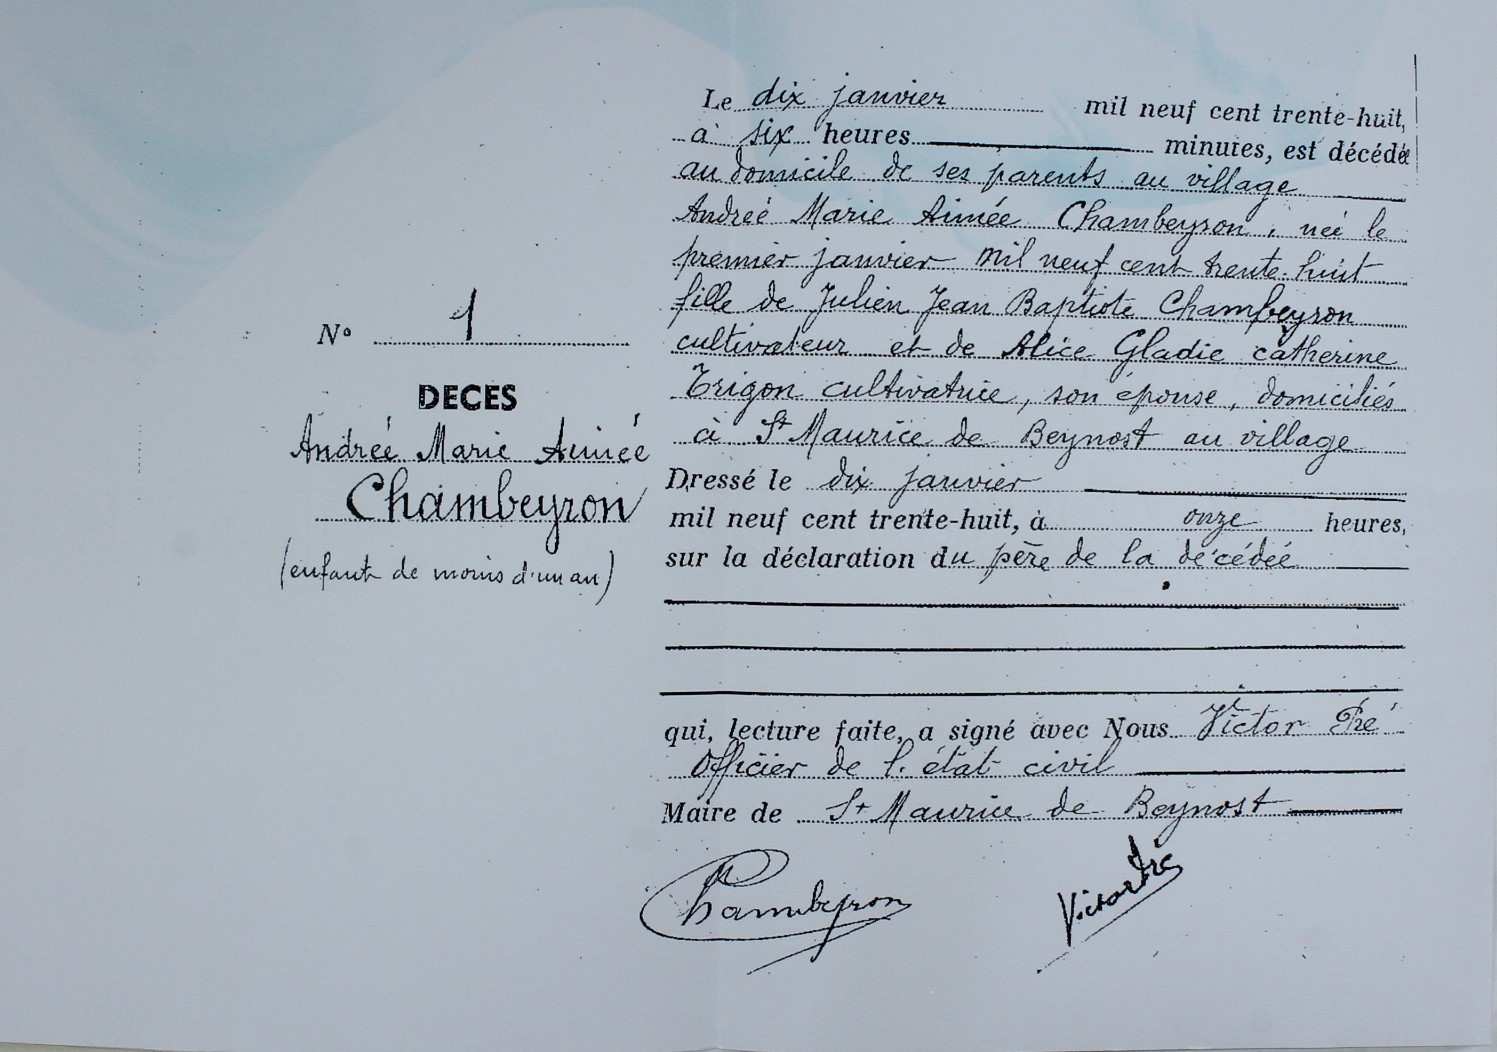 N° 1
DECES
Andreé Marie Aimée
Chambeyron
(enfant de moins d'un an)
Le dix janvier mil neuf cent trente-huit,
à six heures minutes, est décédée
au domicile de ses parents au village
Andreé Marie Aimée Chambeyron, neé le
premier janvier mil neuf cent trente-huit
fille de Julien Jean Baptiste Chambeyron
cultivateur et de Alice Gladie Catherine
Trigon cultivatrice, son épouse, domiciliés
à St Maurice de Beynost au village
Dressé le dix janvier
mil neuf cent trente-huit, à onze heures,
sur la déclaration du père de la décédée
qui, lecture faite, a signé avec Nous Victor Pré
Officier de l'état civil
Maire de St Maurice de Beynost
Chambeyron Victor Pré